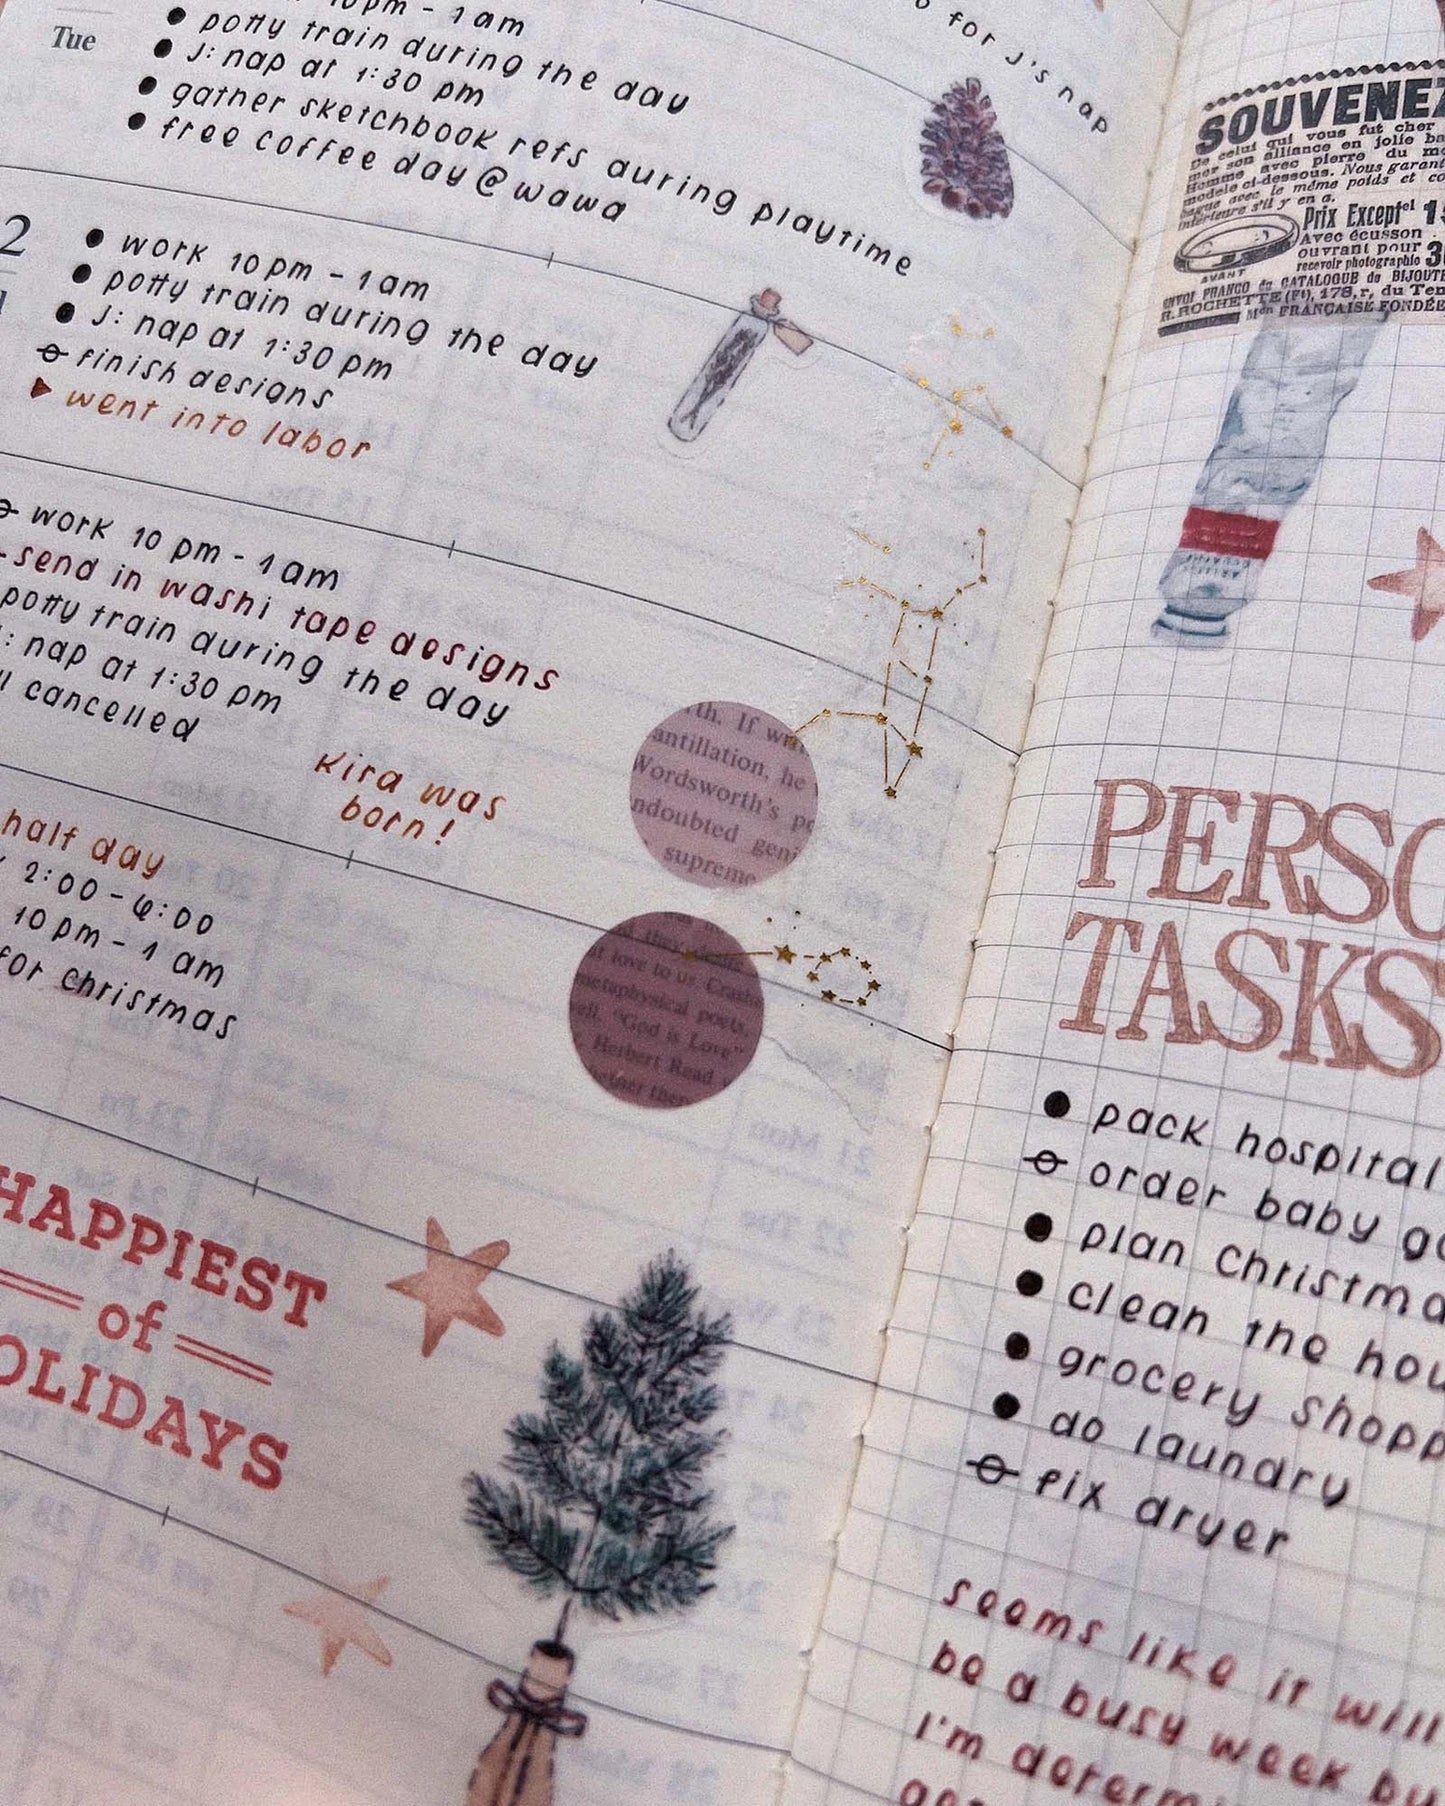 10pm - 1am
Tue
potty train during the day
J: nap at 1:30 pm
gather sketchbook refs during playtime
free coffee day @ wawa
for J's nap
2
work 10pm - 1am
potty train during the day
J: nap at 1:30 pm
finish designs
went into labor
work 10 pm - 1am
send in washi tape designs
potty train during the day
: nap at 1:30 pm
cancelled
Kira was
born!
half day
2:00 - 6:00
10pm - 1 am
for christmas
th. If
antillation, he
Wordsworth's
ndoubted
supreme
they
love to us.
metaphysical poets.
"God is Love"
Herbert Read
HAPPIEST
of
OLIDAYS
SOUVENEZ
qui vous fut cher
son alliance en jolie
Homme avec pierre du
modèle ci-dessous. Nous
bague avec le même poids et
intérieure s'il y en a.
Prix Except
Avec écusson
ouvrant pour
recevoir photographie
AVANT
ENVOI FRANCO du CATALOGUE de
R. ROCHETTE (F), 178, r. du
FRANÇAISE FONDÉE
PERSO
TASKS
pack hospital
order baby
plan Christma
clean the hou
grocery shopp
do laundry
fix dryer
seems like it will
be a busy week bu
I'm determi